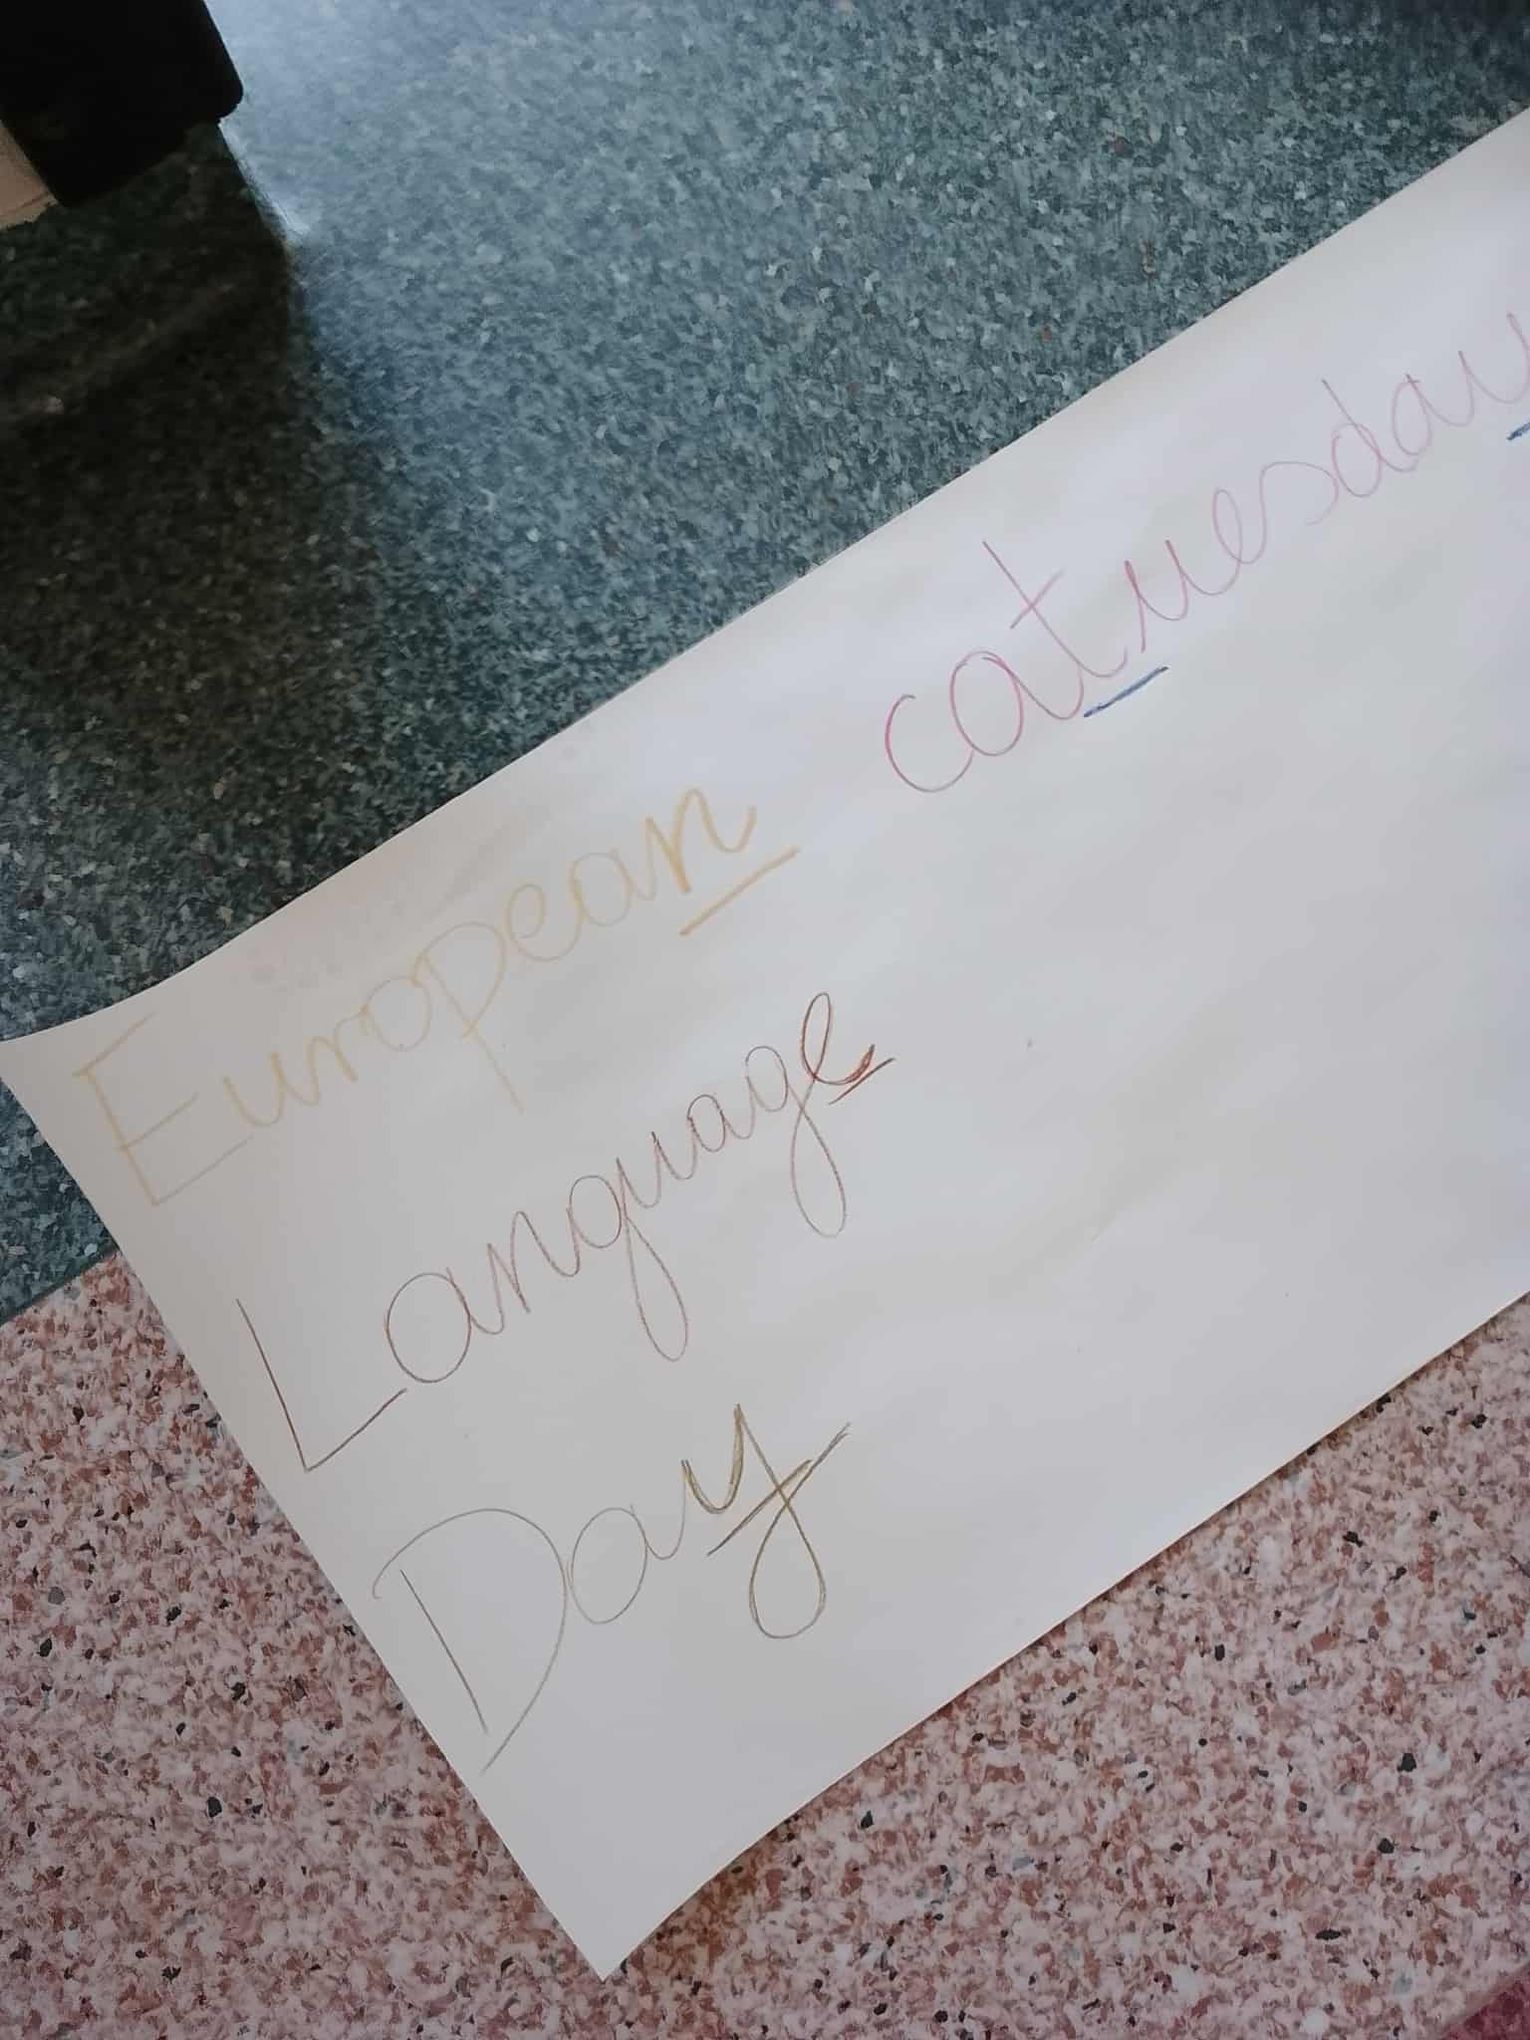 European catuesday
Language
Day